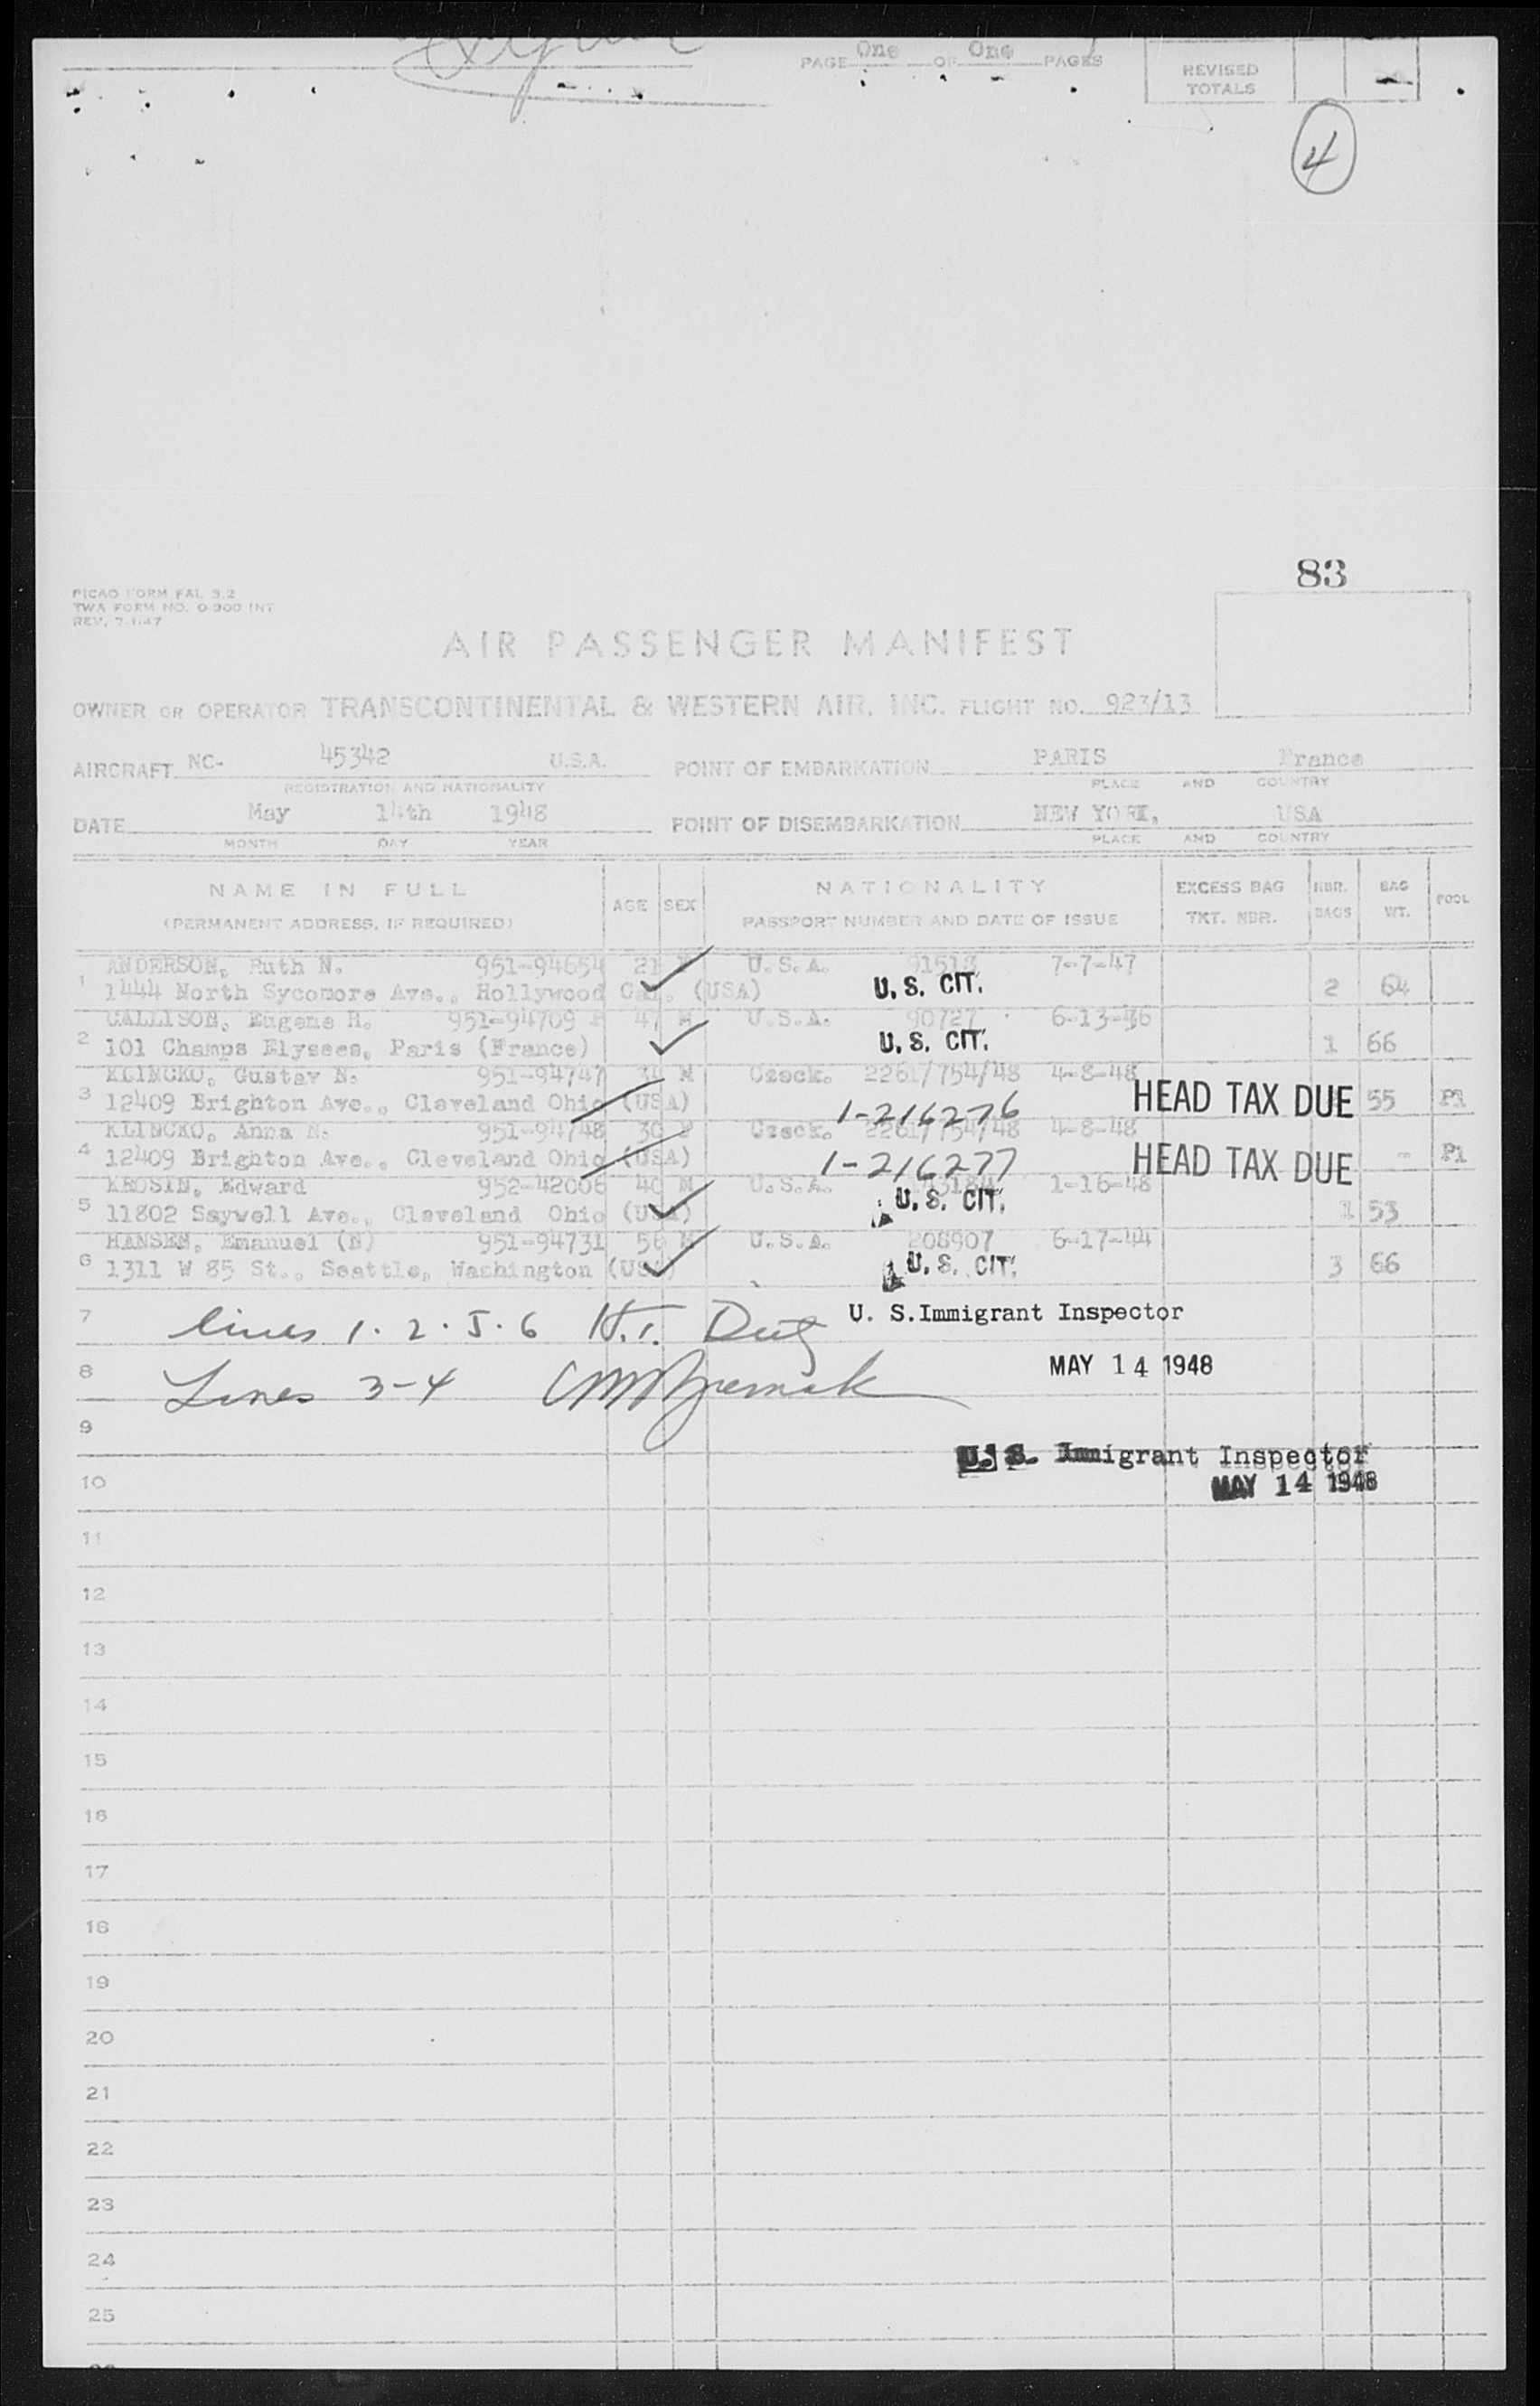 PAGE One OF One PAGES
REVISED
TOTALS
4
83
PICAO FORM FAL 3.2
TWA FORM NO. O-900 INT
REV. 7-1-47
AIR PASSENGER MANIFEST
OWNER OR OPERATOR TRANSCONTINENTAL & WESTERN AIR, INC. FLIGHT NO. 923/13
AIRCRAFT NC- 45342 U.S.A. POINT OF EMBARKATION PARIS France
REGISTRATION AND NATIONALITY PLACE AND COUNTRY
DATE May 14th 1948 POINT OF DISEMBARKATION NEW YORK, USA
MONTH DAY YEAR PLACE AND COUNTRY
NAME IN FULL AGE SEX NATIONALITY EXCESS BAG NBR. BAG POOL
(PERMANENT ADDRESS, IF REQUIRED) PASSPORT NUMBER AND DATE OF ISSUE TKT. NBR. BAGS WT.
1 ANDERSON, Ruth N. 951-94654 21 U.S.A. 7-7-47
1444 North Sycomore Ave., Hollywood Cal. (USA) U.S. CIT. 2 64
2 CALLISON, Eugene H. 951-94709 47 M U.S.A. 90727 6-13-46
101 Champs Elysees, Paris (France) U.S. CIT. 1 66
3 KLINCKO, Gustav N. 951-94747 34 M Czeck. 2261/754/48 4-8-48
12409 Brighton Ave., Cleveland Ohio (USA) 1-216276 HEAD TAX DUE 55 P1
4 KLINCKO, Anna N. 951-94748 30 F Czeck. 2261/754/48 4-8-48
12409 Brighton Ave., Cleveland Ohio (USA) 1-216277 HEAD TAX DUE - P1
5 KROSIN, Edward 952-42006 40 M U.S.A. 1-16-48
11802 Saywell Ave., Cleveland Ohio (USA) U.S. CIT. 1 53
6 HANSEN, Emanuel (N) 951-94731 56 M U.S.A. 208907 6-17-44
1311 W 85 St., Seattle, Washington (USA) U.S. CIT. 3 66
7 lines 1. 2. 5. 6 U. S. Immigrant Inspector
8 Lines 3-4 MAY 14 1948
9
U. S. Immigrant Inspector
10 MAY 14 1948
11
12
13
14
15
16
17
18
19
20
21
22
23
24
25